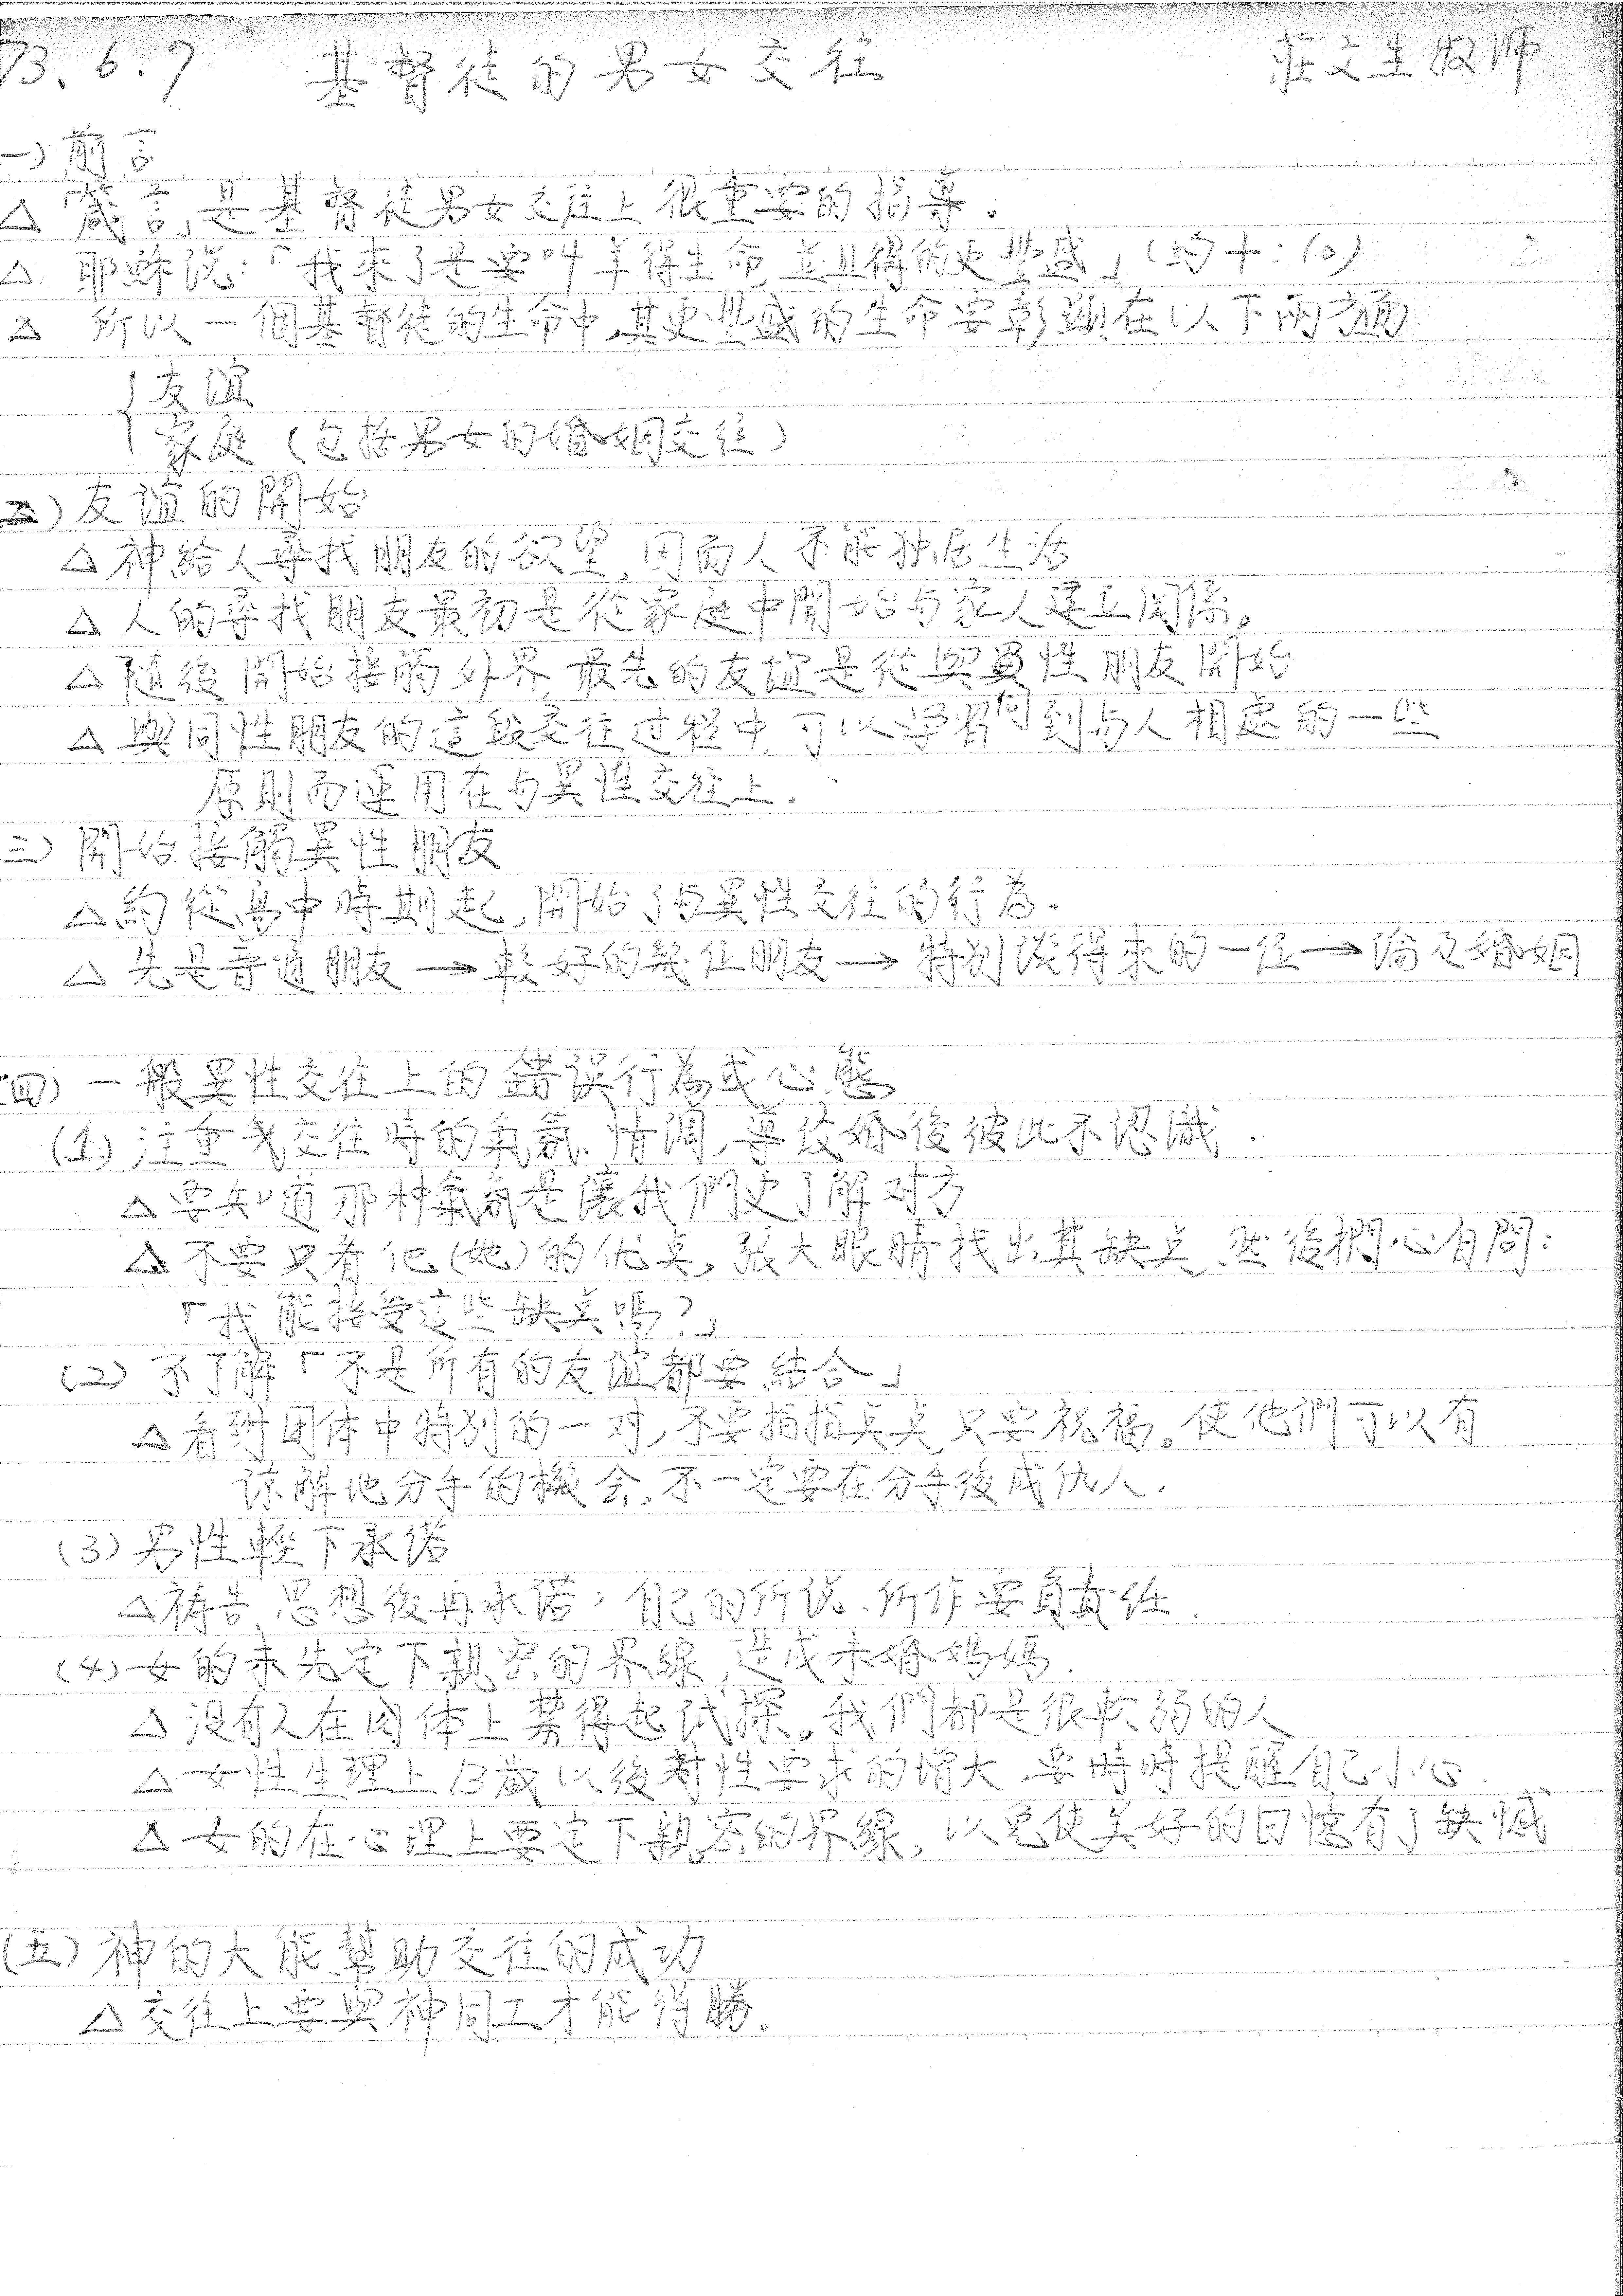 73.6.7 基督徒的男女交往 莊文生牧师
一) 前言
△「箴言」是基督徒男女交往上很重要的指導。
△ 耶穌説:「我來了是要叫羊得生命,並且得的更豐盛」(約十:10)
△ 所以一個基督徒的生命中,其更豐盛的生命要彰顯在以下兩方面
友誼
家庭(包括男女的婚姻交往)
二) 友誼的開始
△ 神給人尋找朋友的欲望,因而人不能独居生活
△ 人的尋找朋友最初是從家庭中開始与家人建立関係。
△ 隨後開始接觸外界,最先的友誼是從與同性朋友開始
△ 與同性朋友的這段交往过程中,可以学習到与人相處的一些
原則而運用在与異性交往上.
三) 開始接觸異性朋友
△ 約從高中時期起,開始了与異性交往的行為.
△ 先是普通朋友→較好的幾位朋友→特別談得來的一位→論及婚姻
(四) 一般異性交往上的錯誤行為或心態
(1) 注重交往時的氣氛、情調,導致婚後彼此不認識.
△ 要知道那种氣氛是讓我們更了解对方
△ 不要只看他(她)的优点,張大眼睛找出其缺点,然後捫心自問:
「我能接受這些缺点嗎?」
(2) 不了解「不是所有的友誼都要結合」
△ 看到团体中特別的一对,不要指指点点,只要祝福。使他們可以有
諒解地分手的機会,不一定要在分手後成仇人.
(3) 男性輕下承諾
△ 祷告,思想後再承諾;自己的所說、所作要負責任.
(4) 女的未先定下親密的界線,造成未婚媽媽.
△ 没有人在肉体上禁得起试探。我們都是很軟弱的人
△ 女性生理上13歲以後对性要求的增大,要時時提醒自己小心.
△ 女的在心理上要定下親密的界線,以免使美好的回憶有了缺憾
(五) 神的大能幫助交往的成功
△ 交往上要與神同工才能得勝。